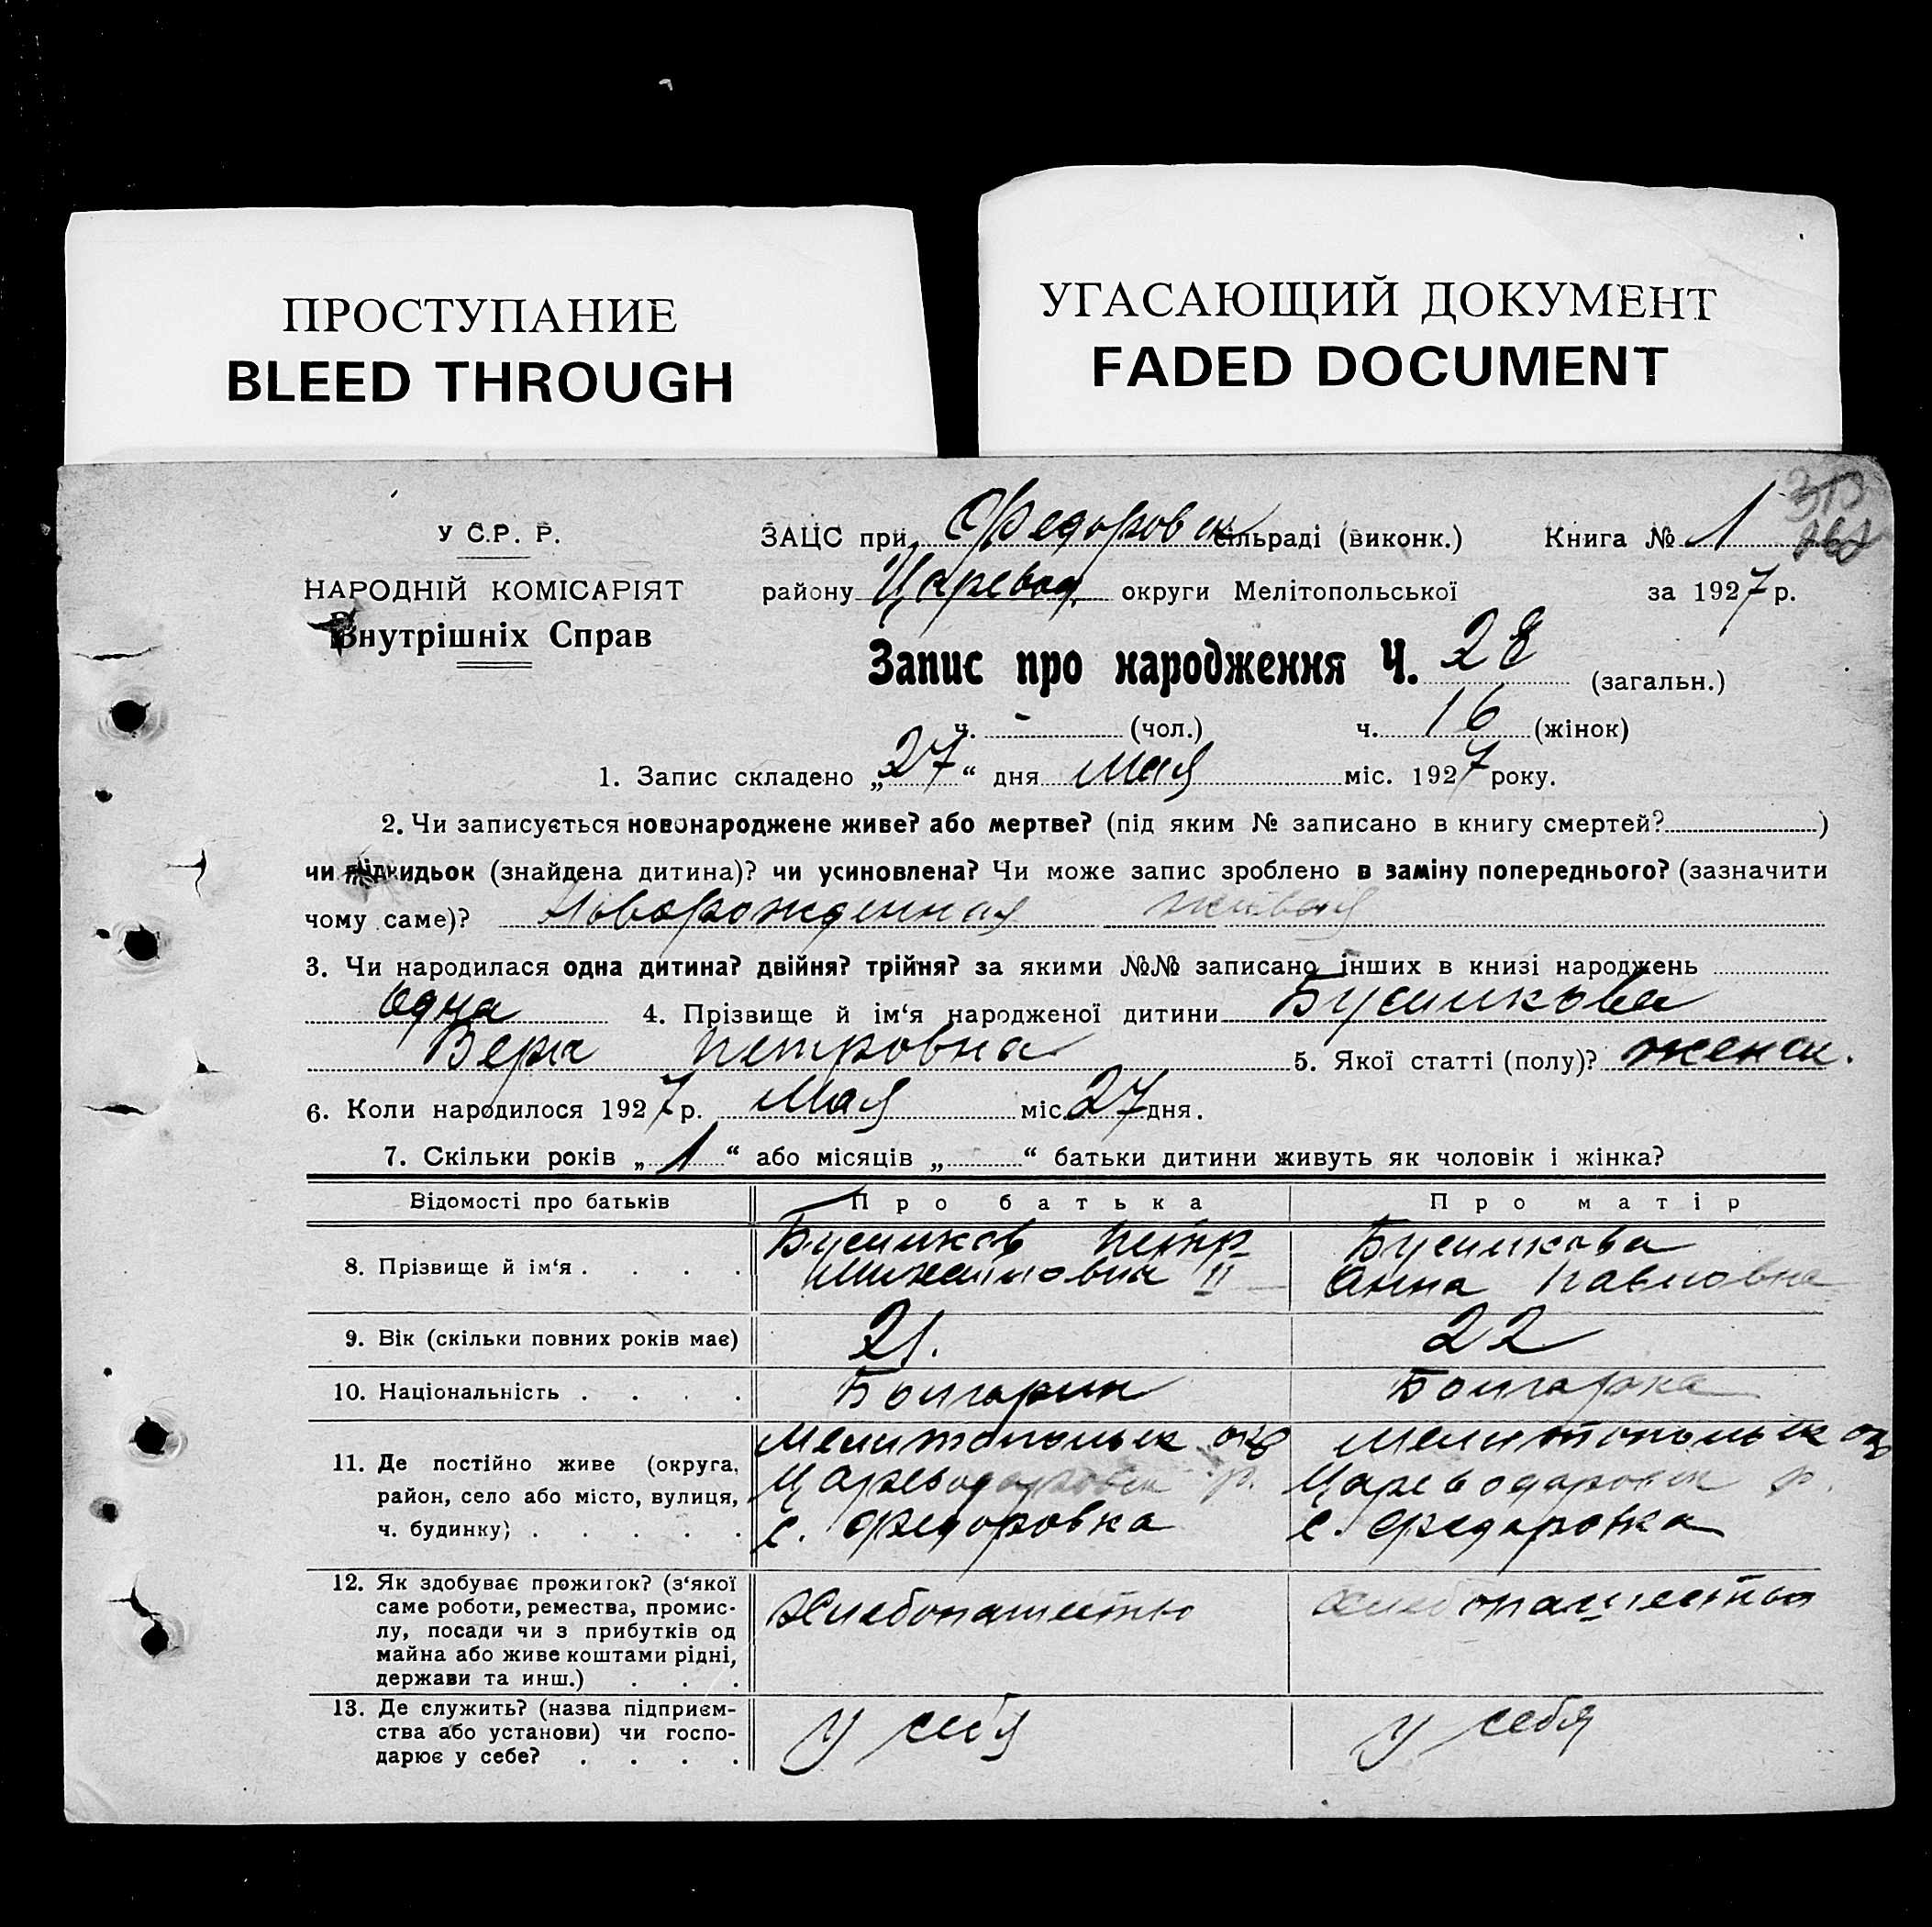 ПРОСТУПАНИЕ
BLEED THROUGH
УГАСАЮЩИЙ ДОКУМЕНТ
FADED DOCUMENT
У С.Р. Р.
НАРОДНІЙ КОМІСАРІЯТ
Внутрішніх Справ
ЗАЦС при Федоровск сільраді (виконк.) Книга № 1
району Царевод. округи Мелітопольської за 1927 р.
Запис про народження Ч. 28 (загальн.)
ч. - (чол.) ч. 16 (жінок)
1. Запис складено „27“ дня мая міс. 1927 року.
2. Чи записується новонароджене живе? або мертве? (під яким № записано в книгу смертей? )
чи підкидьок (знайдена дитина)? чи усиновлена? Чи може запис зроблено в заміну попереднього? (зазначити
чому саме)? Новорожденная живая
3. Чи народилася одна дитина? двійня? трійня? за якими №№ записано інших в книзі народжень
одна 4. Прізвище й ім‘я народженої дитини
Вера Петровна 5. Якої статті (полу)? женск.
6. Коли народилося 1927 р. мая міс. 27 дня.
7. Скільки років „ 1 “ або місяців „ “ батьки дитини живуть як чоловік і жінка?
Відомості про батьків Про батька Про матір
8. Прізвище й ім‘я . . . . Петр Михайлович II Анна Павловна
9. Вік (скільки повних років має) 21. 22
10. Національність . . . . Болгарин Болгарка
11. Де постійно живе (округа,
район, село або місто, вулиця,
ч. будинку) . . . . .
Мелитопольск окр
Цареводаровск р.
с. Федоровка
Мелитопольск ок
Цареводаровск р.
с. Федоровка
12. Як здобуває прожиток? (з‘якої
саме роботи, ремества, промис-
лу, посади чи з прибутків од
майна або живе коштами рідні,
держави та инш.) . . .
Хлебопашество
Хлебопашество
13. Де служить? (назва підприєм-
ства або установи) чи госпо-
дарює у себе? . . . .
у себя
у себя